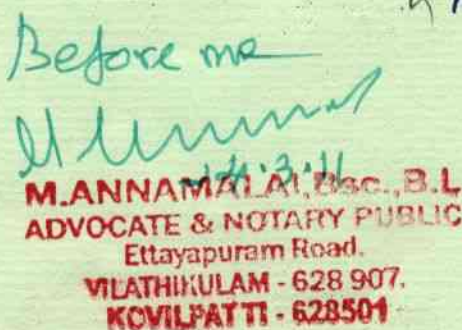 Before me
24.3.11
M.ANNAMALAI, Bsc., B.L
ADVOCATE & NOTARY PUBLIC
Ettayapuram Road.
VILATHIKULAM - 628 907.
KOVILPATTI - 628501